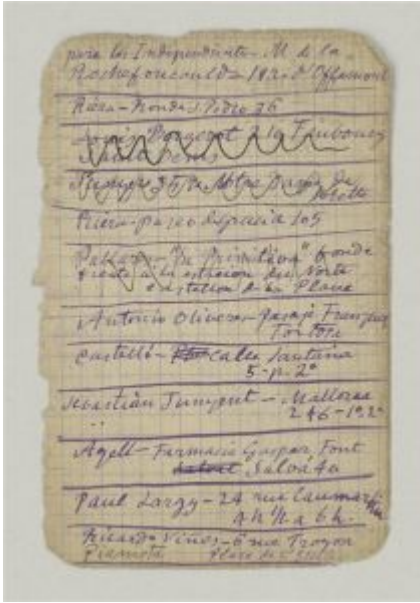 para los Independientes M. de la
Rochefoucauld - 19 r. d'Offemont
Riera - Ronda S. Pedro 36
Faubourg
Saint Denis
35 r. Notre Dame de
Lorette
Riera - paseo de gracia 105
Pallarés - "La Primitiva" fonda
frente a la estacion del Norte
Castellon de la Plana
Antonio Oliveres - pasaje Franquet
Tortosa
Castelló - calle Santana
5 - p. 2º
Sebastián Junyent - Mallorca
246 - 1º 2ª
Agell - Farmacia Gaspar Font
Salvá 40
Paul Larzy - 24 rue Caumartin
4 h. a 6 h.
Ricardo Viñes - 6 rue Troyon
Place de l'Etoile